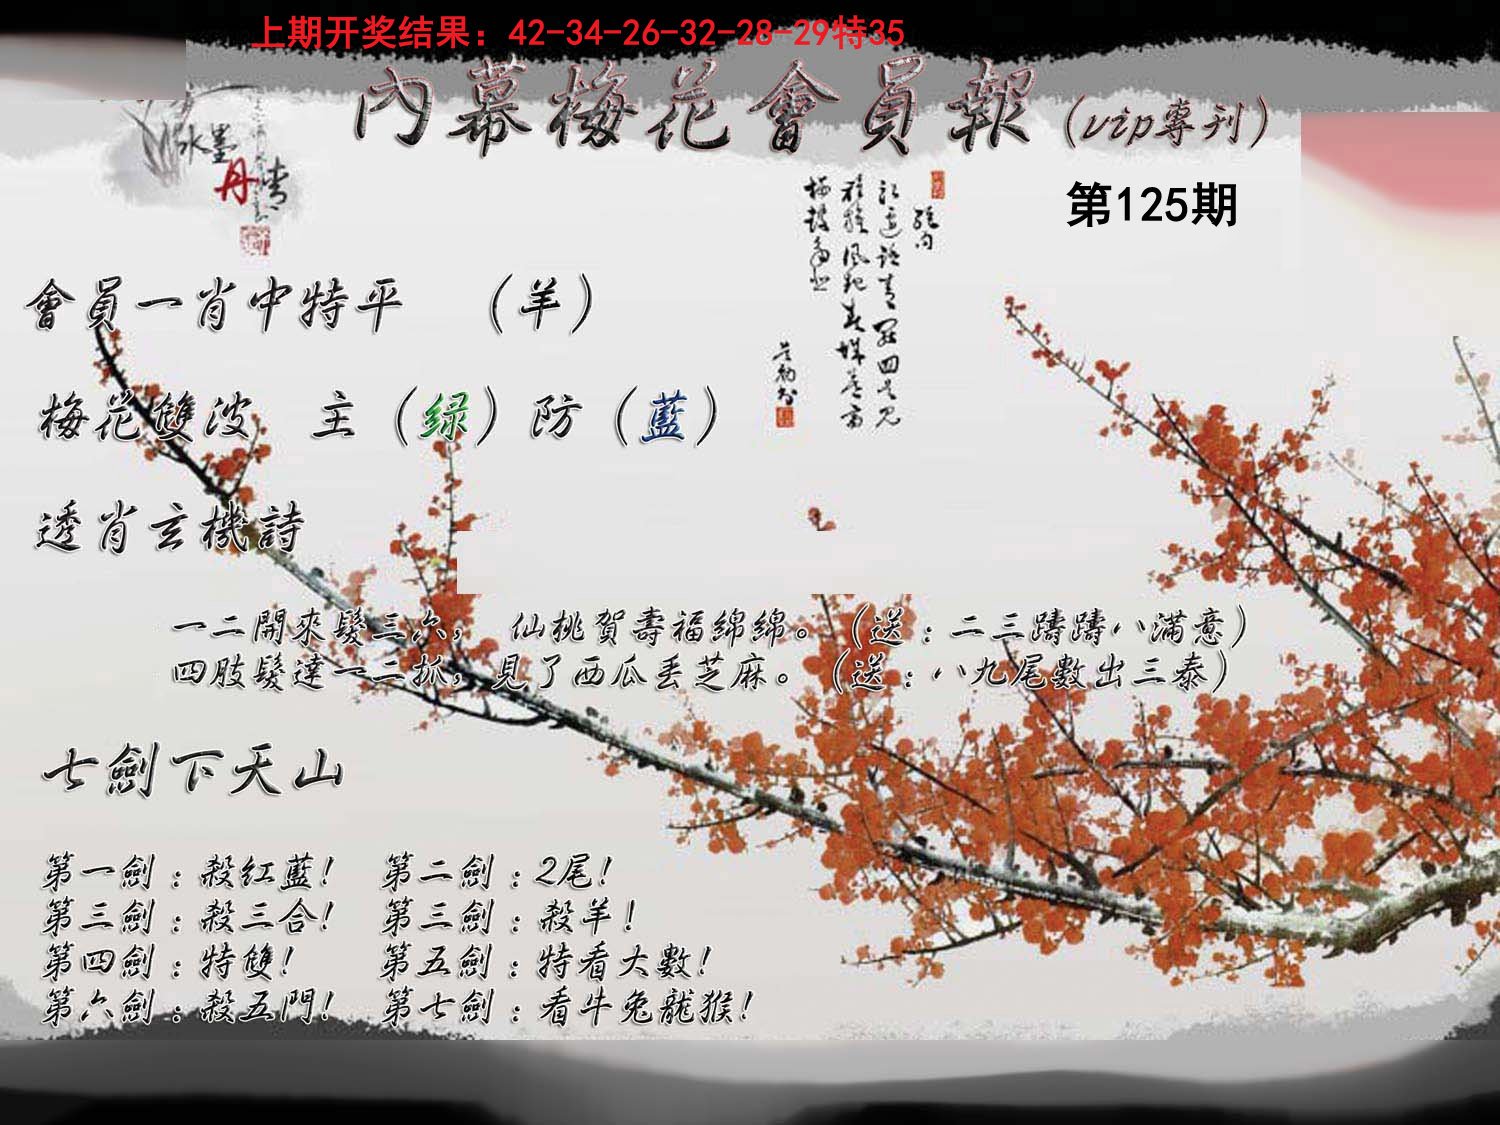 上期开奖结果：42-34-26-32-28-29特35
內幕梅花會員報(vip專刊)
水墨
丹青
第125期
會員一肖中特平　（羊）
梅花雙波　主（绿）防（藍）
透肖玄機詩
一二開來髮三六，　仙桃賀壽福綿綿。（送：二三躊躊八滿意）
四肢髮達一二抓，見了西瓜丟芝麻。（送：八九尾數出三泰）
七劍下天山
第一劍：殺红藍！　第二劍：2尾！
第三劍：殺三合！　第三劍：殺羊！
第四劍：特雙！　第五劍：特看大數！
第六劍：殺五門！　第七劍：看牛兔龍猴！